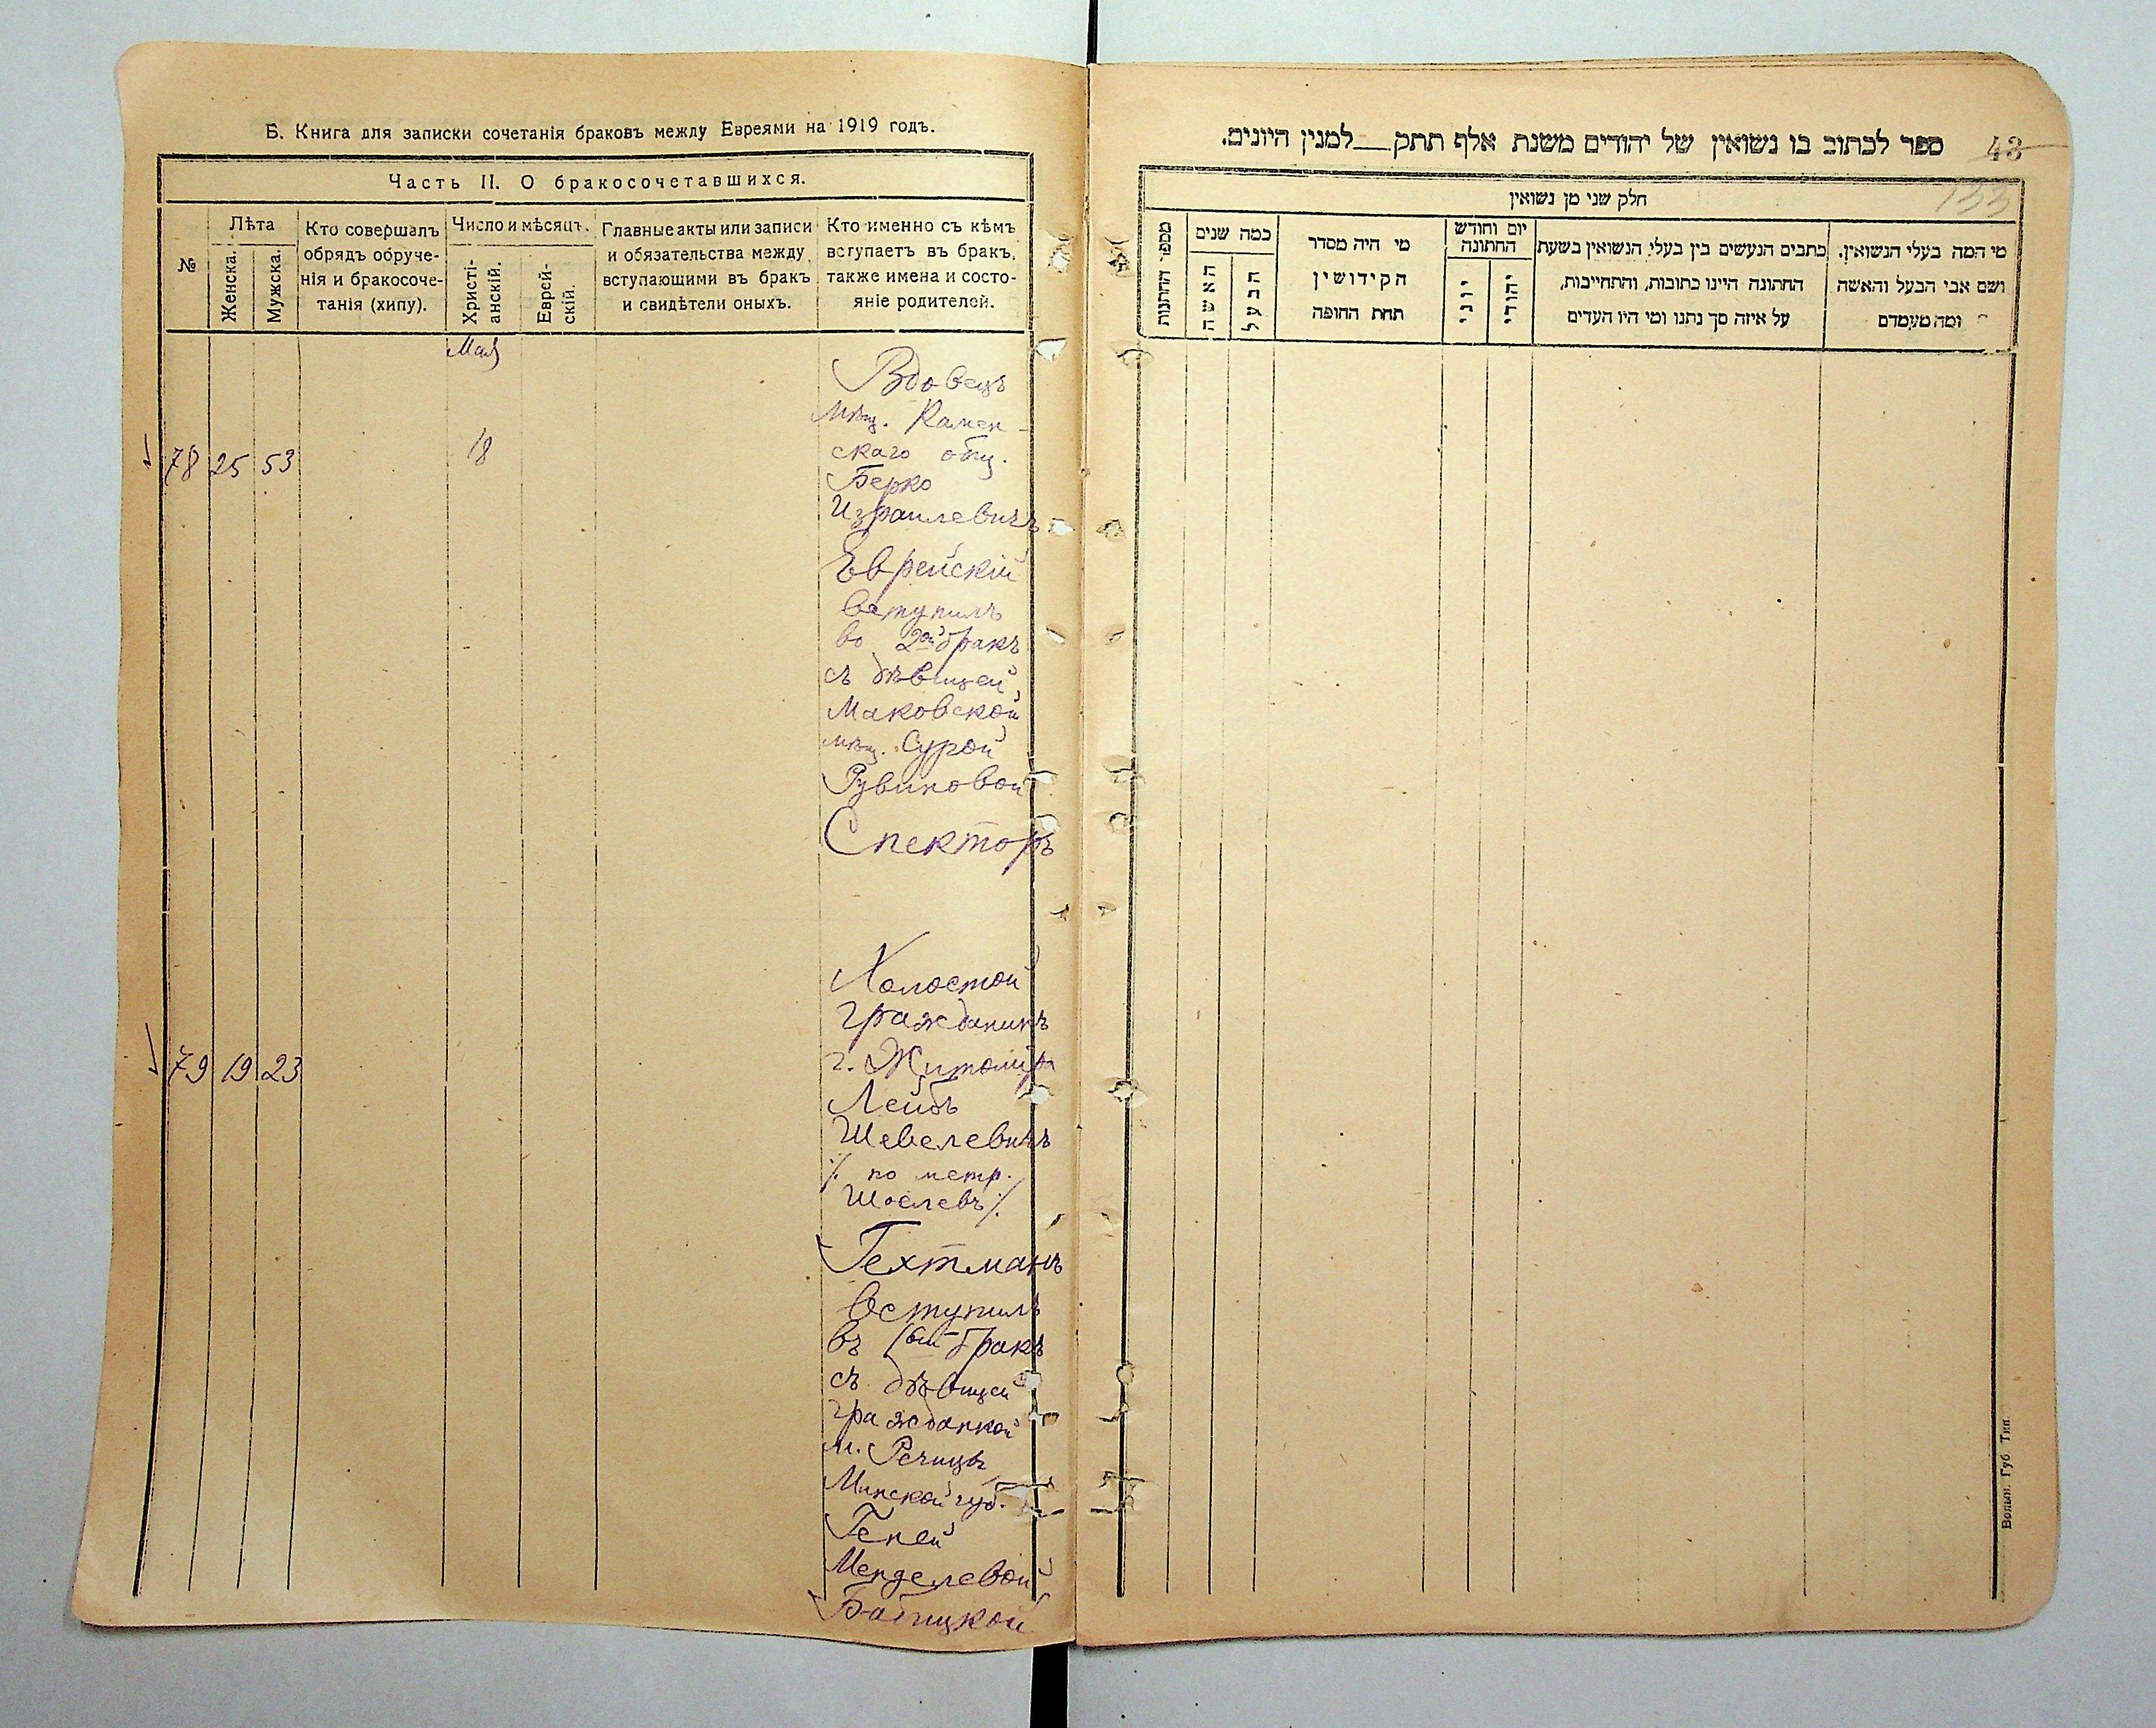 Б. Книга для записки сочетанія браковъ между Евреями на 1919 годъ.
Часть II. О бракосочетавшихся.
№
Лѣта
Женска.
Мужска.
Кто совершалъ
обрядъ обруче-
нія и бракосоче-
танія (хипу).
Число и мѣсяцъ.
Христі-
анскій.
Еврей-
скій.
Главные акты или записи
и обязательства между
вступающими въ бракъ
и свидѣтели оныхъ.
Кто именно съ кѣмъ
вступаетъ въ бракъ,
также имена и состо-
яніе родителей.
Май
Вдовецъ
мѣщ. Камен-
скаго общ.
78 25 53 18
Берко
Израилевичъ
Еврейскій
вступилъ
во 2ой бракъ
съ дѣвицей
Маковской
мѣщ. Сурой
Рувиновой
Спекторъ
Холостой
гражданинъ
г. Житомира
79 19 23
Лейбъ
Шевелевичъ
/. по метр.
Шоелевъ /.
Гехтманъ
вступилъ
въ 1ый бракъ
съ дѣвицей
гражданкой
м. Речицы
Минской губ.
Геней
Менделевой
Бабицкой
ספר לכתוב בו נשואין של יהודים משנת אלף תתק__למנין היונים.
43
133
חלק שני מן נשואין
מספר החתונות
כמה שנים
האשה
הבעל
מי היה מסדר
הקידושין
תחת החופה
יום וחודש
החתונה
יוני
יהודי
כתבים הנעשים בין בעלי הנשואין בשעת
החתונה היינו כתובות, והתחייבות,
על איזה סך נתנו ומי היו העדים
מי המה בעלי הנשואין.
ושם אבי הבעל והאשה
ומה מעמדם
Волын. Губ Тип